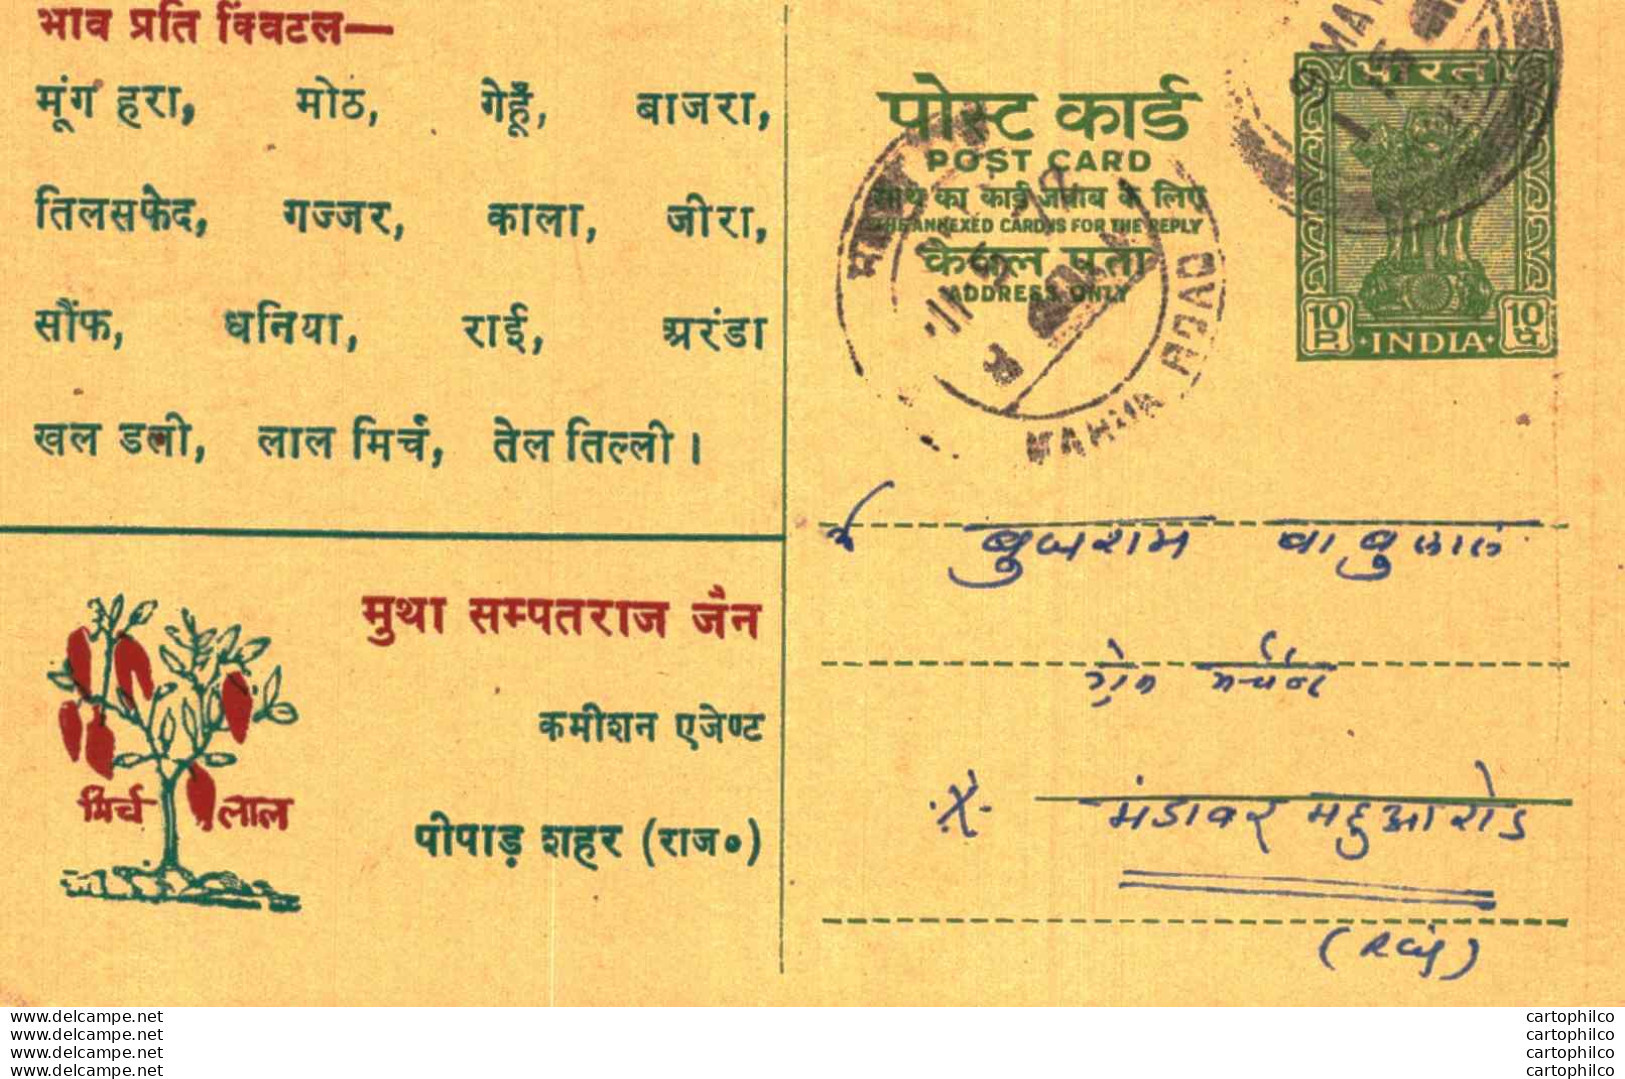 भाव प्रति क्विंटल—
मूंग हरा, मोठ, गेहूँ, बाजरा,
तिलसफेद, गज्जर, काला, जीरा,
सौंफ, धनिया, राई, अरंडा
खल डली, लाल मिर्च, तेल तिल्ली।
मुथा सम्पतराज जैन
कमीशन एजेण्ट
पीपाड़ शहर (राज०)
मिर्च लाल
भारत
10 P. INDIA 10 पै.
पोस्ट कार्ड
POST CARD
साथ का कार्ड जवाब के लिए
THE ANNEXED CARD IS FOR THE REPLY
केवल पता
ADDRESS ONLY
MAHWA ROAD
बाबुलाल
मंडावर महुआ रोड
(Raj)
www.delcampe.net cartophilco
www.delcampe.net cartophilco
www.delcampe.net cartophilco
www.delcampe.net cartophilco